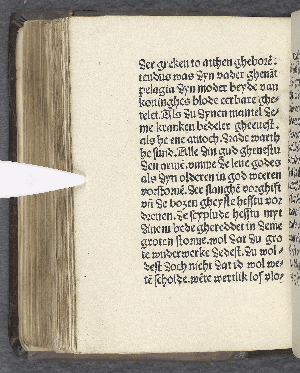 der greken to athen ghebore̅.
tendus was dyn vader ghena̅t
pelagia dyn moder beyde van
koninghes blode eerbare ghe-
telet. Als du dynen mantel de-
me kranken bedeler gheuest.
als he ene antoch. drade warth
he sund. Alle din gud gheuestu
den arme̅. vmme de leue godes
als dyn olderen in god weren
vorstorue̅. der slanghe̅ vorghift
vn̅ de bozen gheyste hefstu vor
dreuen. de scyplude hefstu myt
dinem bede gheredder in deme
groten storme. wol dat du gro
te wnderwerke dedest. du wol-
dest doch nicht dat id wol we-
te̅ scholde. we̅te wertlik lof vlo-